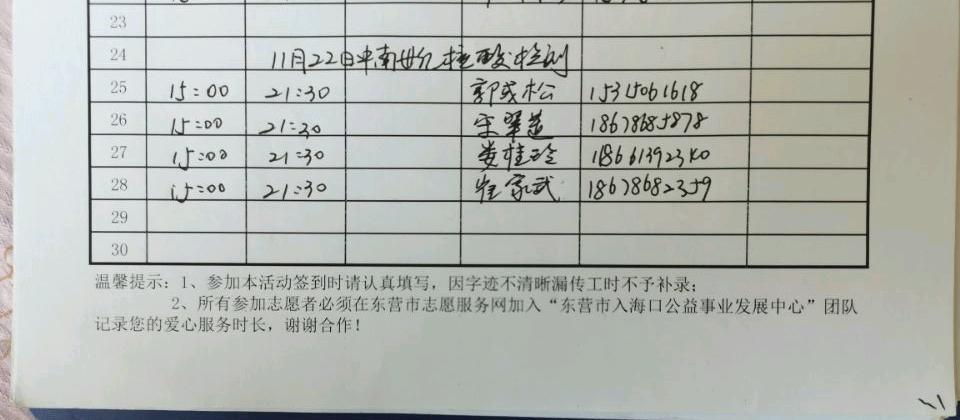 23
24 11月22日中南世纪核酸检测
25 15:00 21:30 郭成松 15315061618
26 15:00 21:30 宋翠莲 18678685878
27 15:00 21:30 娄桂玲
28 15:00 21:30 崔家武 18678682359
29
30
温馨提示:1、参加本活动签到时请认真填写,因字迹不清晰漏传工时不予补录;
2、所有参加志愿者必须在东营市志愿服务网加入“东营市入海口公益事业发展中心”团队
记录您的爱心服务时长,谢谢合作!